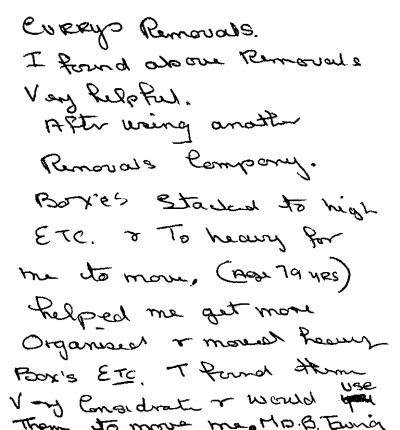 Currys Removals.
I found above Removals
Very helpful.
After using another
Removals Company.
Box'es Stacked to high
ETC. & To heavy for
me to move, (Age 79 YRS)
helped me get more
Organised & moved heavy
Box's ETC. I found them
Very Considrate & would use
Them to move me, Mr. B.